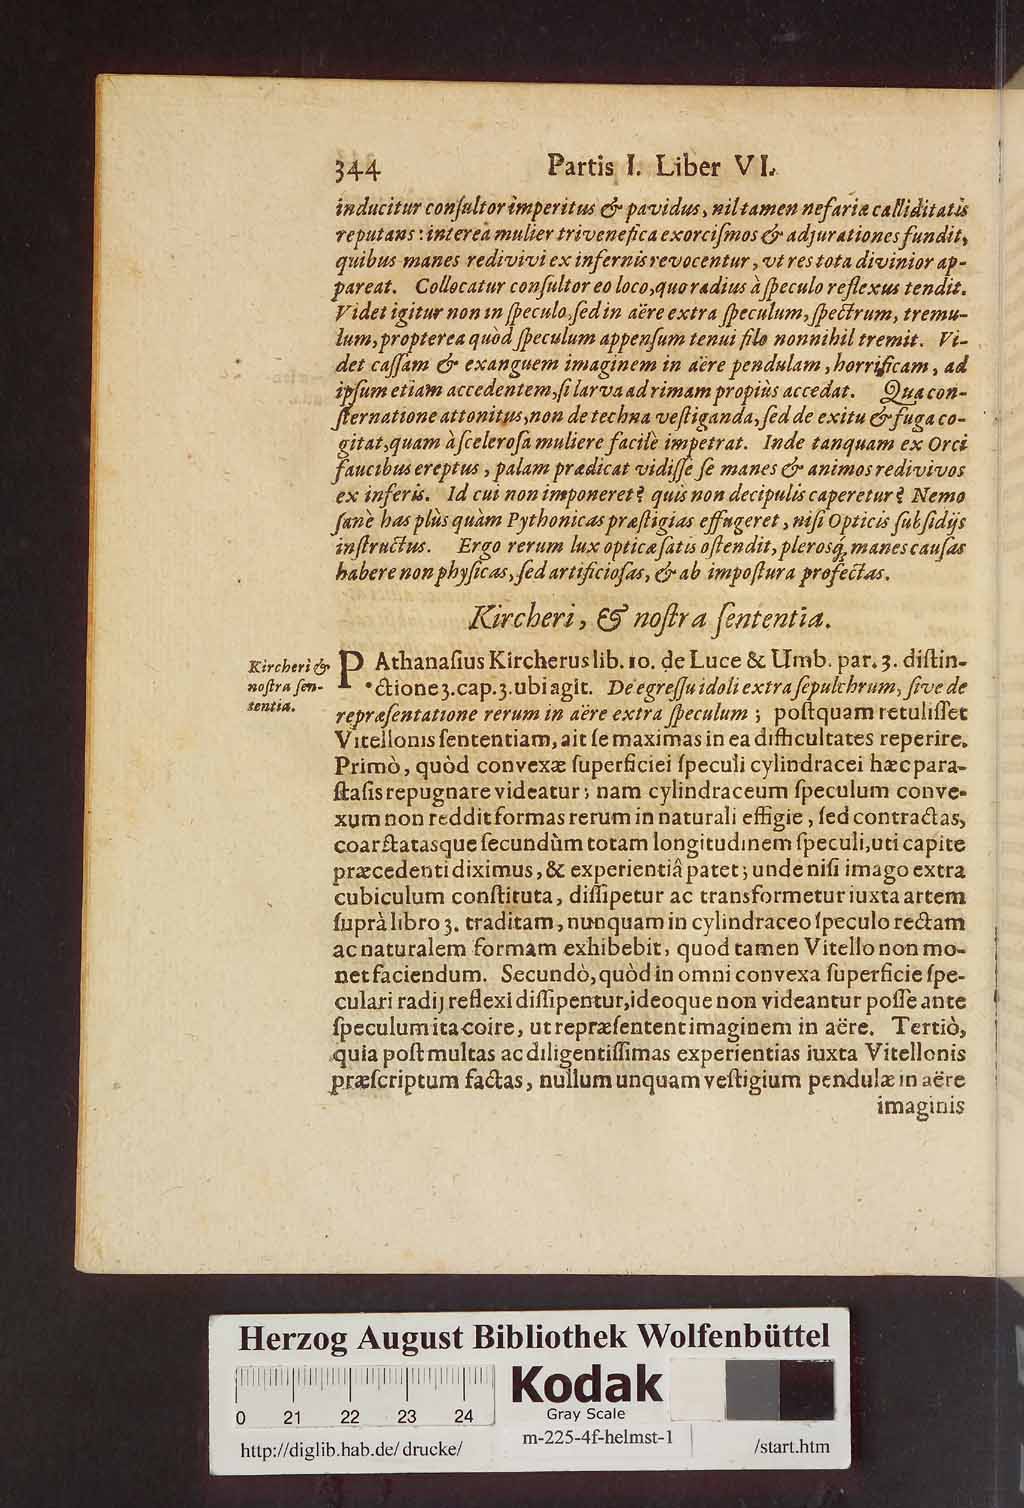 344 Partis I. Liber VI.
inducitur conſultor imperitus & pavidus, nil tamen nefariæ calliditatis
reputans: intereà mulier trivenefica exorciſmos & adjurationes fundit,
quibus manes redivivi ex infernis revocentur, vt res tota divinior ap-
pareat. Collocatur conſultor eo loco, quo radius à ſpeculo reflexus tendit.
Videt igitur non in ſpeculo, ſed in aëre extra ſpeculum, ſpectrum, tremu-
lum, propterea quòd ſpeculum appenſum tenui filo nonnihil tremit. Vi-
det caſſam & exanguem imaginem in aëre pendulam, horrificam, ad
ipſum etiam accedentem, ſi larva ad rimam propiùs accedat. Qua con-
ſternatione attonitus, non de techna veſtiganda, ſed de exitu & fuga co-
gitat, quam à ſceleroſa muliere facilè impetrat. Inde tanquam ex Orci
faucibus ereptus, palam prædicat vidiſſe ſe manes & animos redivivos
ex inferis. Id cui non imponeret? quis non decipulis caperetur? Nemo
ſanè has plùs quàm Pythonicas præſtigias effugeret, niſi Opticis ſubſidijs
inſtructus. Ergo rerum lux opticæ ſatis oſtendit, pleroſq́; manes cauſas
habere non phyſicas, ſed artificioſas, & ab impoſtura profectas.
Kircheri, & noſtra ſententia.
Kircheri &
noſtra ſen-
tentia.
P. Athanaſius Kircherus lib. 10. de Luce & Umb. par. 3. diſtin-
ctione 3. cap. 3. ubi agit. De egreſſu idoli extra ſepulchrum, ſive de
repræſentatione rerum in aëre extra ſpeculum; poſtquam retuliſſet
Vitellonis ſententiam, ait ſe maximas in ea difficultates reperire.
Primò, quòd convexæ ſuperficiei ſpeculi cylindracei hæc para-
ſtaſis repugnare videatur; nam cylindraceum ſpeculum conve-
xum non reddit formas rerum in naturali effigie, ſed contractas,
coarctatasque ſecundùm totam longitudinem ſpeculi, uti capite
præcedenti diximus, & experientiâ patet; unde niſi imago extra
cubiculum conſtituta, diſſipetur ac transformetur iuxta artem
ſuprà libro 3. traditam, nunquam in cylindraceo ſpeculo rectam
ac naturalem formam exhibebit, quod tamen Vitello non mo-
net faciendum. Secundò, quòd in omni convexa ſuperficie ſpe-
culari radij reflexi diſſipentur, ideoque non videantur poſſe ante
ſpeculum ita coire, ut repræſentent imaginem in aëre. Tertiò,
quia poſt multas ac diligentiſſimas experientias iuxta Vitellonis
præſcriptum factas, nullum unquam veſtigium pendulæ in aëre
imaginis
Herzog August Bibliothek Wolfenbüttel
Kodak
Gray Scale
0 21 22 23 24
m-225-4f-helmst-1
http://diglib.hab.de/drucke/ /start.htm